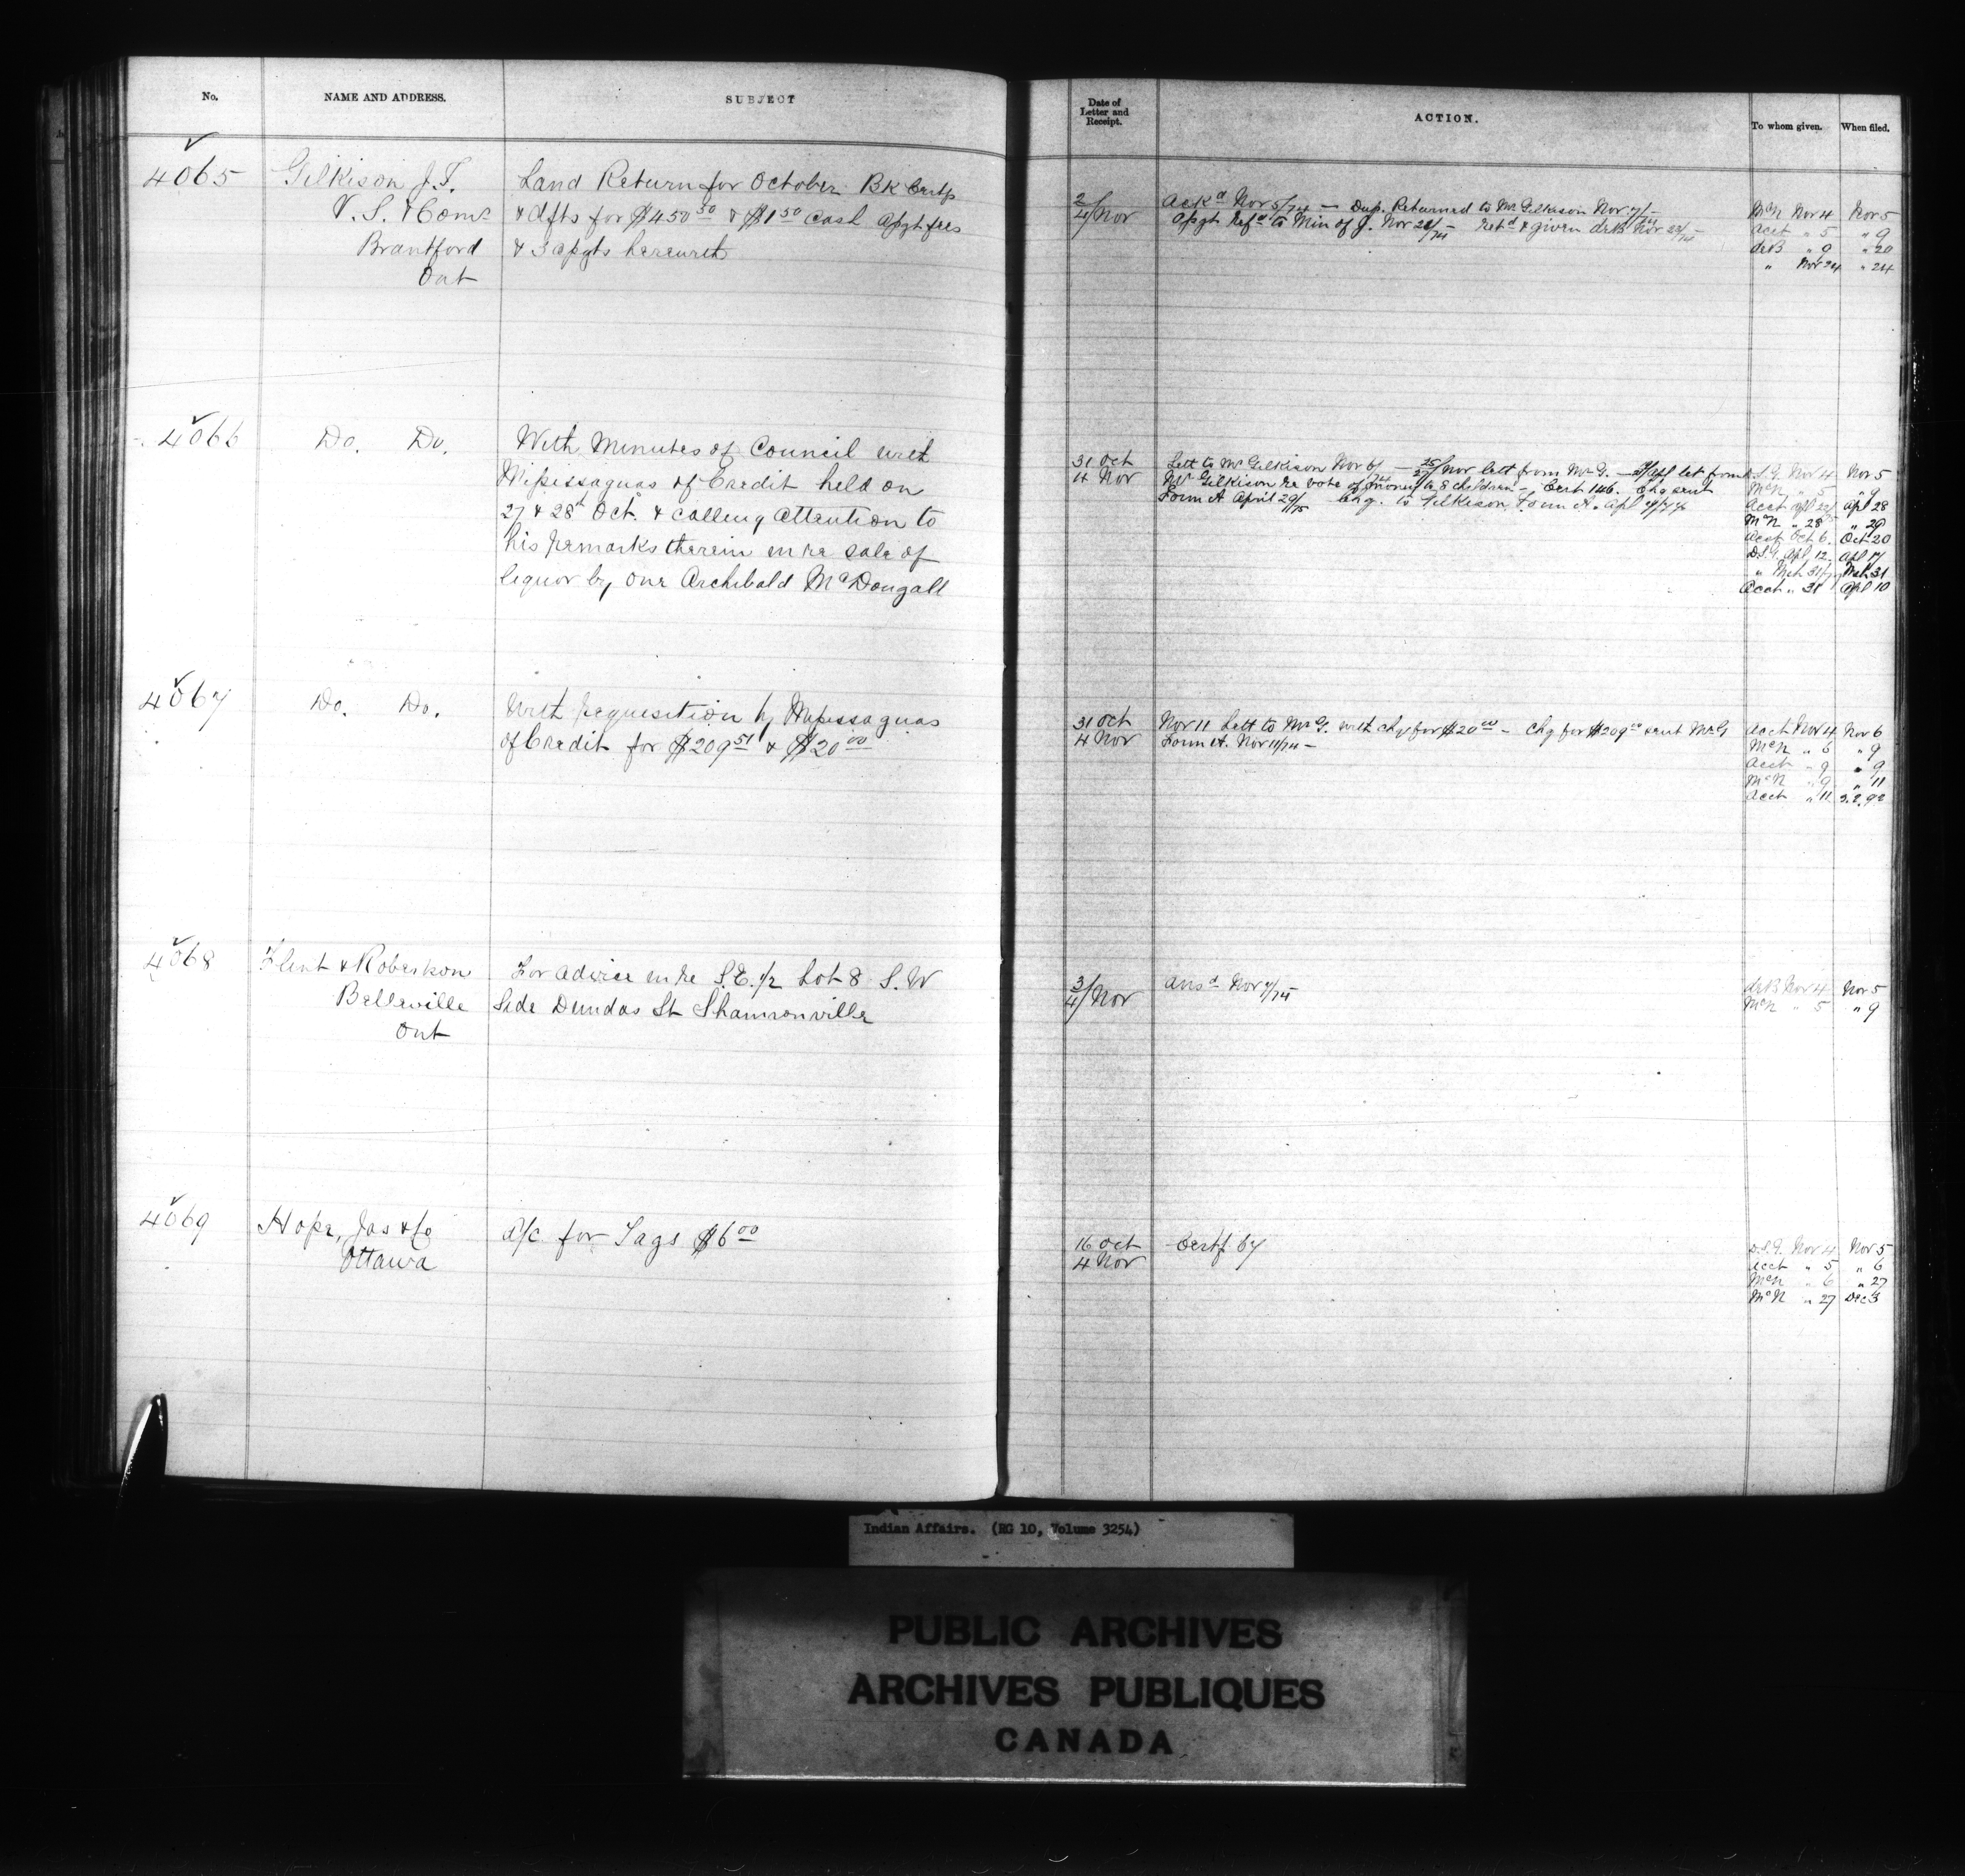 No.
NAME AND ADDRESS.
SUBJECT
4065
Gilkison J.T.
V.S. & Comr
Brantford
Ont
Land Return for October Bk Certfs
& dfts for $450 50 & $1 50 Cash Assgt fees
& 3 assgts herewith
4066
Do. Do.
With Minutes of Council with
Mississaguas of Credit held on
27 & 28th Oct. & calling attention to
his remarks therein in re sale of
liquor by one Archibald McDougall
4067
Do. Do.
With requisition by Missisaguas
of Credit for $209 51 & $20 00
4068
Flint & Robertson
Belleville
Ont
For advice in re S.E. 1/2 Lot 8 S.W
Side Dundas St Shannonville
4069
Hope, Jas & Co
Ottawa
A/c for Tags $6 00
Date of
Letter and
Receipt.
ACTION.
To whom given.
When filed.
2/
4/Nov
Ackd Nov 5/74 — Dup. Returned to Mr Gilkison Nov 7/74 —
Assgt Refd to Min of J. Nov 21/74 — retd & given deB Nov
McN Nov 4 Nov 5
Acct " 5 " 9
deB " 9 " 20
" Nov 24 " 24
31 Oct
4 Nov
Lett to Mr Gilkison Nov 6/74 — 25/27 Nov lett from Mr G. — let from
Mr Gilkison re vote of money to 8 children — Cert 146. Chq sent
Form A April 29/75 Chq. to Gilkison Form A. Apl
D.S.G. Nov 4 Nov 5
McN " 5 " 9
Acct Apl 22/ Apl 28
McN " 28 " 29
Acct Oct 6. Oct 20
D.S.G. Apl 12. Apl 17
" Mch 31 Mch 31
Acct " 31 Apl 10
31 Oct
4 Nov
Nov 11 Lett to Mr G. with chq for $20 00 — Chq for $209 sent Mr G
Form A. Nov 11/74 —
Acct Nov 4 Nov 6
McN " 6 " 9
Acct " 9 " 9
McN " 9 " 11
Acct " 11
3/
4/Nov
Ansd Nov 7/74
deB Nov 4 Nov 5
McN " 5 " 9
16 Oct
4 Nov
Certf 67
D.S.G. Nov 4 Nov 5
Acct " 5 " 6
McN " 6 " 27
McN " 27 Dec 3
Indian Affairs. (RG 10, Volume 3254)
PUBLIC ARCHIVES
ARCHIVES PUBLIQUES
CANADA